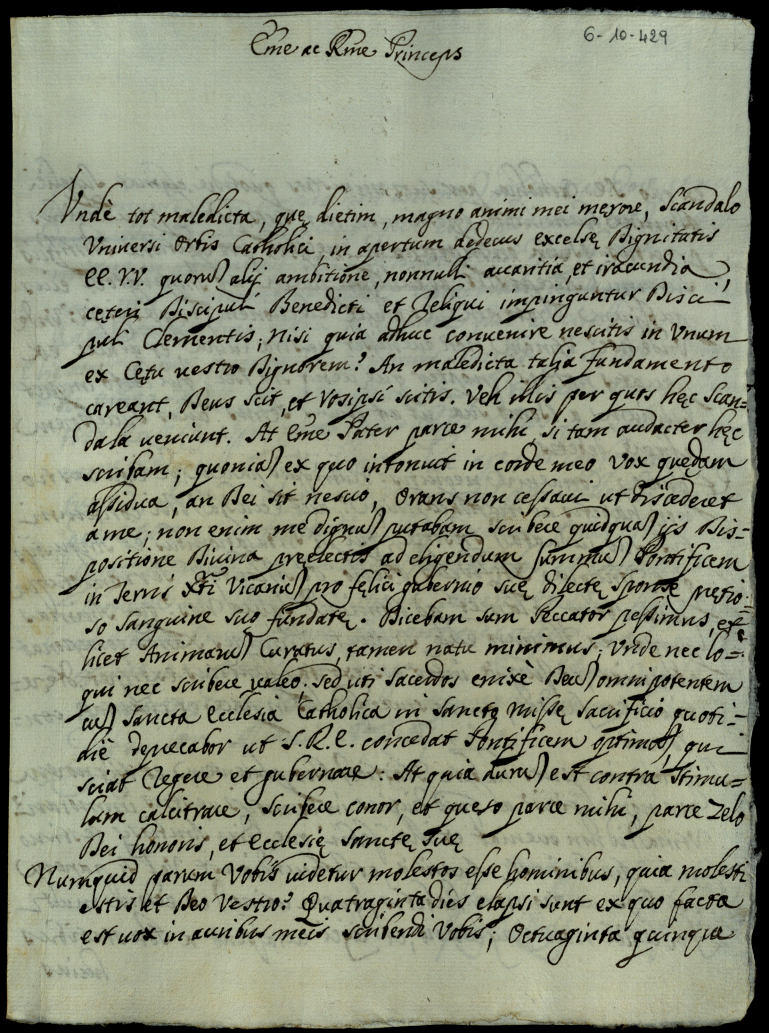 6-10-429
Eme ac Rme Princeps
Vndè tot maledicta, quę dietim, magno animi mei merore, scandalo
Vniversi Orbis Catholici, in apertum dedecus excelsę Dignitatis
EE. VV. quorum alij ambitione, nonnulli avaritia, et iracundia,
cęteri Discipuli Benedicti et Reliqui impinguntur Disci-
puli Clementis; nisi quia adhuc convenire nescitis in Vnum
ex Cętu vestro Digniorem? An maledicta talia fundamento
careant, Deus scit, et Vosipsi scitis. Veh illis per quos hęc Scan-
dala veniunt. At Eme Pater parce mihi, si tam audacter hęc
scribam; quoniam ex quo intonuit in corde meo Vox quędam
assidua, an Dei sit nescio, Orans non cessavi ut discederet
a me; non enim me dignum putabam scribere quidquam ijs Dis-
positione Divina pręelectos ad eligendum summum Pontificem
in Terris Xti Vicarium pro felici gubernio suę dilectę sponsę pretio-
so sanguine suo fundatę. Dicebam sum Peccator pessimus, et
licet Animarum Curatus, tamen natu minimus; Vnde nec lo-
qui nec scribere valeo; sed uti sacerdos enixè Deum omnipotentem
cum Sancta Ecclesia Catholica in sancto missę sacrificio quoti-
diè deprecabor ut S.R.E. concedat Pontificem optimum, qui
sciat Regere et gubernare: At quia durum est contra stimu-
lum calcitrare, scribere conor, et queso parce mihi, parce Zelo
Dei honoris, et Ecclesię Sanctę suę
Numquid parum Vobis videtur molestos esse hominibus, quia molesti
estis et Deo Vestro? Quatraginta dies elapsi sunt ex quo facta
est vox in auribus meis scribendi Vobis; Octuaginta quinque